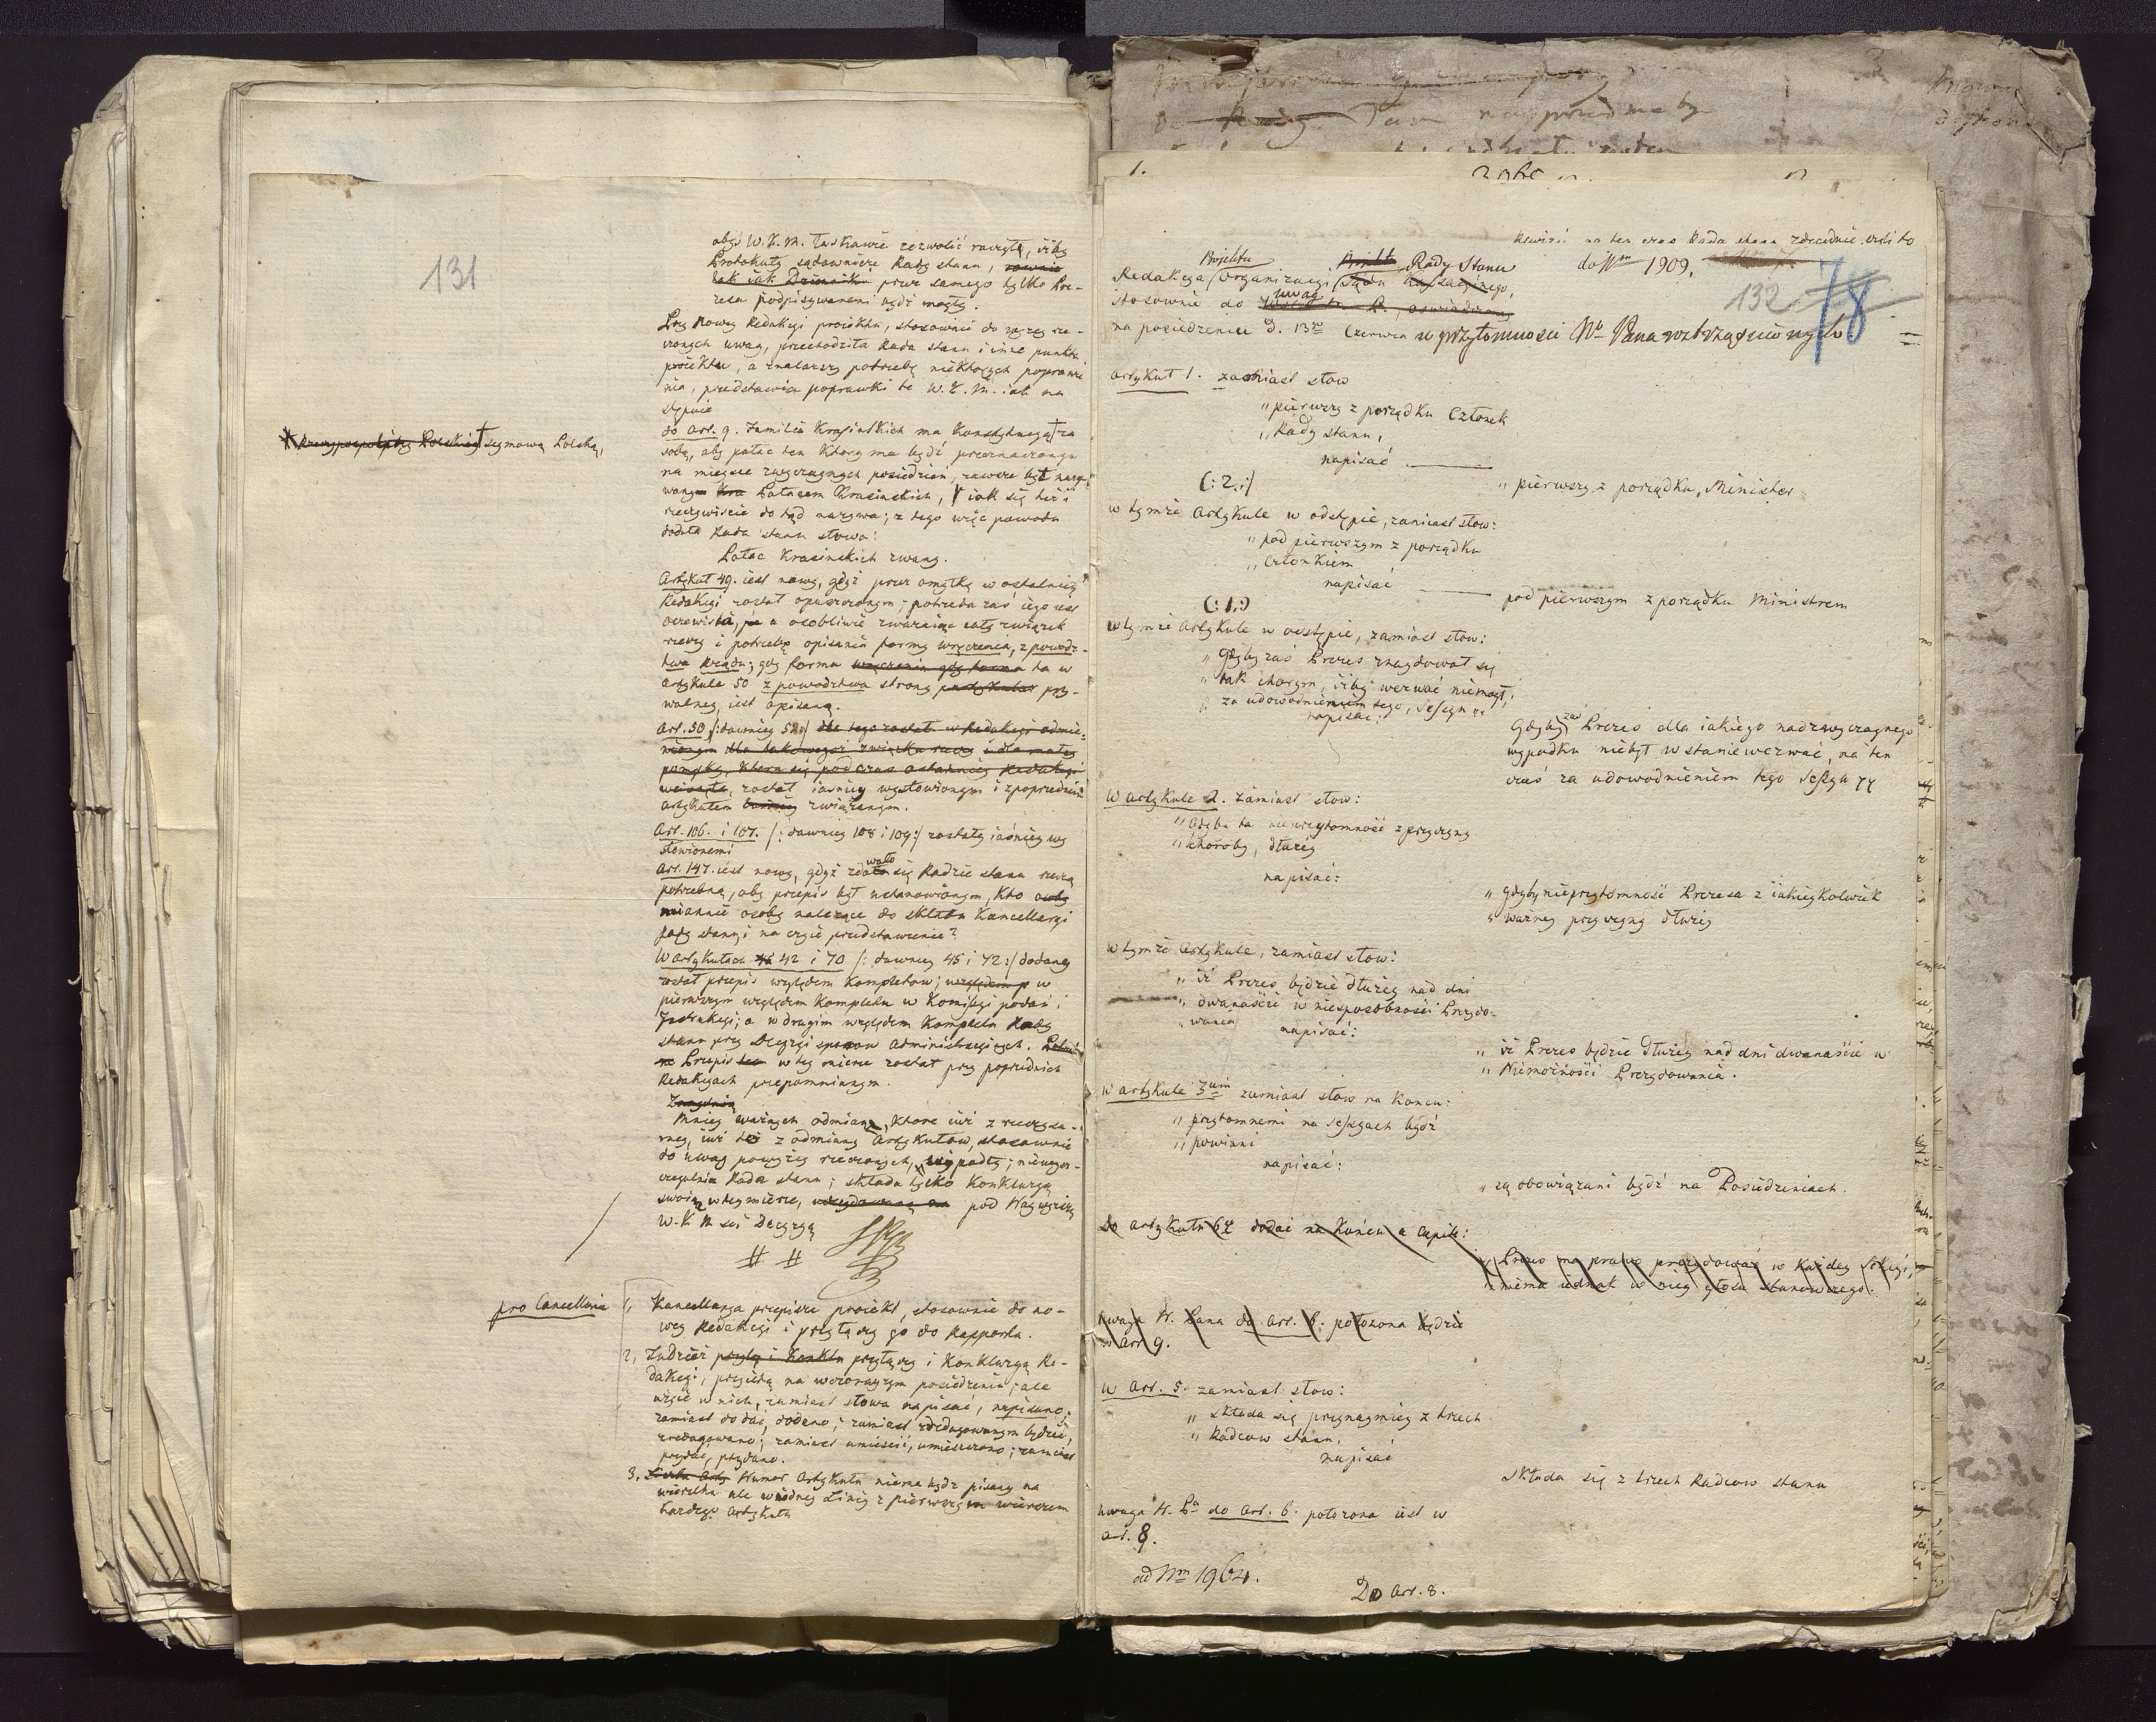 131
abyś W. K. M. łaskawie zezwolić raczył, iżby
Protokuły sądownicze Rady stanu, rownie
tak iak Dzienniki przez samego tylko Pre-
zesa podpisywanemi bydź mogły.
Przy nowey Redakcyi proiektu, stosownie do wyrze-
czonych uwag, przechodziła Rada stanu i inne punkta
proiektu, a znalazszy potrzebę niektorych poprawie
nia, przedstawia poprawki te W. K. M. iak na
stępuie
do art. 9. Familia Krasinskich ma Konstytucyą † za
sobą, aby pałac ten ktory ma bydź przeznaczonym
na mieysce zwyczaynych posiedzeń, zawsze był nazy-
wanym Pałacem Krasinskich, iak się też i
rzeczywiscie do tąd nazywa; z tego więc powodu
dodała Rada stanu słowa:
Pałac Krasinskich zwany.
Rzeczypospolitey Polskiey † seymową Polską,
Artykuł 49. iest nowy, gdyż przez omyłkę w ostatniey
Redakcyi został opuszczonym; potrzeba zaś iego iest
oczewista, a osobliwie zważaiąc cały związek
rzeczy i potrzebę opisania formy wręczenia, z powodz-
twa Rządu; gdy forma wręczenia gdy forma ta w
Artykule 50 z powodztwa strony partykular pry-
watney, iest opisaną.
Art. 50 /: dawniey 52 :/ dla tego został w Redakcyi odmie-
nionym dla takowegoż związku rzeczy i dla małey
pomyłki, ktora się podczas ostatniey Redakcyi
wcisnęła, został iaśniey wysłowionym i z poprzednim
Artykułem związanym.
Art. 106. i 107. /: dawniey 108 i 109 :/ zostały iaśniey wy
słowionemi
Art. 147. iest nowy, gdyż zdawało się Radzie stanu rzeczą
potrzebną, aby przepis był ustanowionym, kto osoby
mianuie osoby należące do składu Kancellaryi
Rady stanu i na czyie przedstawienie?
W artykułach 42 i 70 /: dawniey 45 i 72 :/ dodany
został przepis względem Kompletow; względem w
pierwszym względem Kompletu w Komissyi podań i
Instrukcyi; a w drugim względem Kompletu Rady
stanu przy Decyzyi sporow administracyinych.
Przepis w tey mierze został przy poprzednich
Redakcyach przepomnianym.
Mniey ważnych odmian, ktore iuż z rzeczy sa-
mey, iuż też z odmiany Artykułow, stosownie
do uwag powyżey rzeczonych, wypadły; niewyszc-
czegulnia Rada stanu; składa tylko Konkluzyą
swoią w tey mierze, pod Naywyższą
W. K. M sci Decyzyą
# #
pro Cancellaria
1, Kancellarya przepisze proiekt, stosownie do no-
wey Redakcyi i przyłączy go do Rapportu.
2, Tudzież przyłączy i Konkluzyą Re-
dakcyi, przyiętą na wczorayszym posiedzeniu; ale
użyie w nich, zamiast słowa napisać, napisano;
zamiast dodać, dodano; zamiast zredagowanym będzie,
zredagowano; zamiast umieścić, umieszczono; zamiast
przydać, przydano.
3. Numer Artykułu niema bydź pisany na
wierzchu ale w iedney Linii z pierwszym wierszem
każdego artykułu
1.
na ten czas Rada stanu
do Nm 1909.
132
78
Redakcya Projektu Organizacyi Rady Stanu
Sądu Kassacyinego,
stosownie do uwag
na posiedzeniu d. 13go Czerwca w przytomności No Pana roztrząśnionych
Artykuł 1. zamiast słow
„ pierwszy z porządku Członek
„ Rady stanu,
napisać
„ pierwszy z porządku, Minister
(: 2. :)
w tymże Artykule w odstępie, zamiast słow:
„ pod pierwszym z porządku
„ Członkiem
napisać
pod pierwszym z porządku Ministrem
(: 1. :)
w tymże Artykule w odstępie, zamiast słow:
„ Gdyby zaś Prezes znaydował się
„ tak chorym, iżby wezwać niemogł,
„ za udowodnieniem tego, Sessyn „
napisać:
Gdyby zaś Prezes dla iakiego nadzwyczaynego
wypadku niebył w stanie wezwać, na ten
czas za udowodnieniem tego Sessyn „
W artykule 2. zamiast słow:
„ Gdyby ta nieprzytomność z przyczyny
„ choroby, dłużey
napisać:
„ Gdyby nieprzytomność Prezesa z iakieykolwiek
„ ważney przyczyny dłużey
w tymże Artykule, zamiast słow:
„ iż Prezes będzie dłużey nad dni
„ dwanaście w niesposobności Prezydo-
„ wania
napisać:
„ iż Prezes będzie dłużey nad dni dwanaście w
„ Niemożności Prezydowania.
W artykule 3cim zamiast słow na końcu:
„ przytomnemi na Sessyach bydź
„ powinni
napisać:
„ są obowiązani bydź na Posiedzeniach.
do Artykułu 64 dodać na końcu a capite:
„ Prezes ma prawo prezydować w każdey Sekcyi,
„ niema iednak w niey głosu stanowczego.
Uwaga N. Pana do art. 6. położona będzie
w Art 9.
W Art. 5. zamiast słow:
„ składa się przynaymniey z trzech
„ Radcow stanu,
napisać
składa się z trzech Radcow stanu
uwaga N. Pa do art. 6. położona iest w
art. 8.
ad Nm 1964.
Do art. 8.